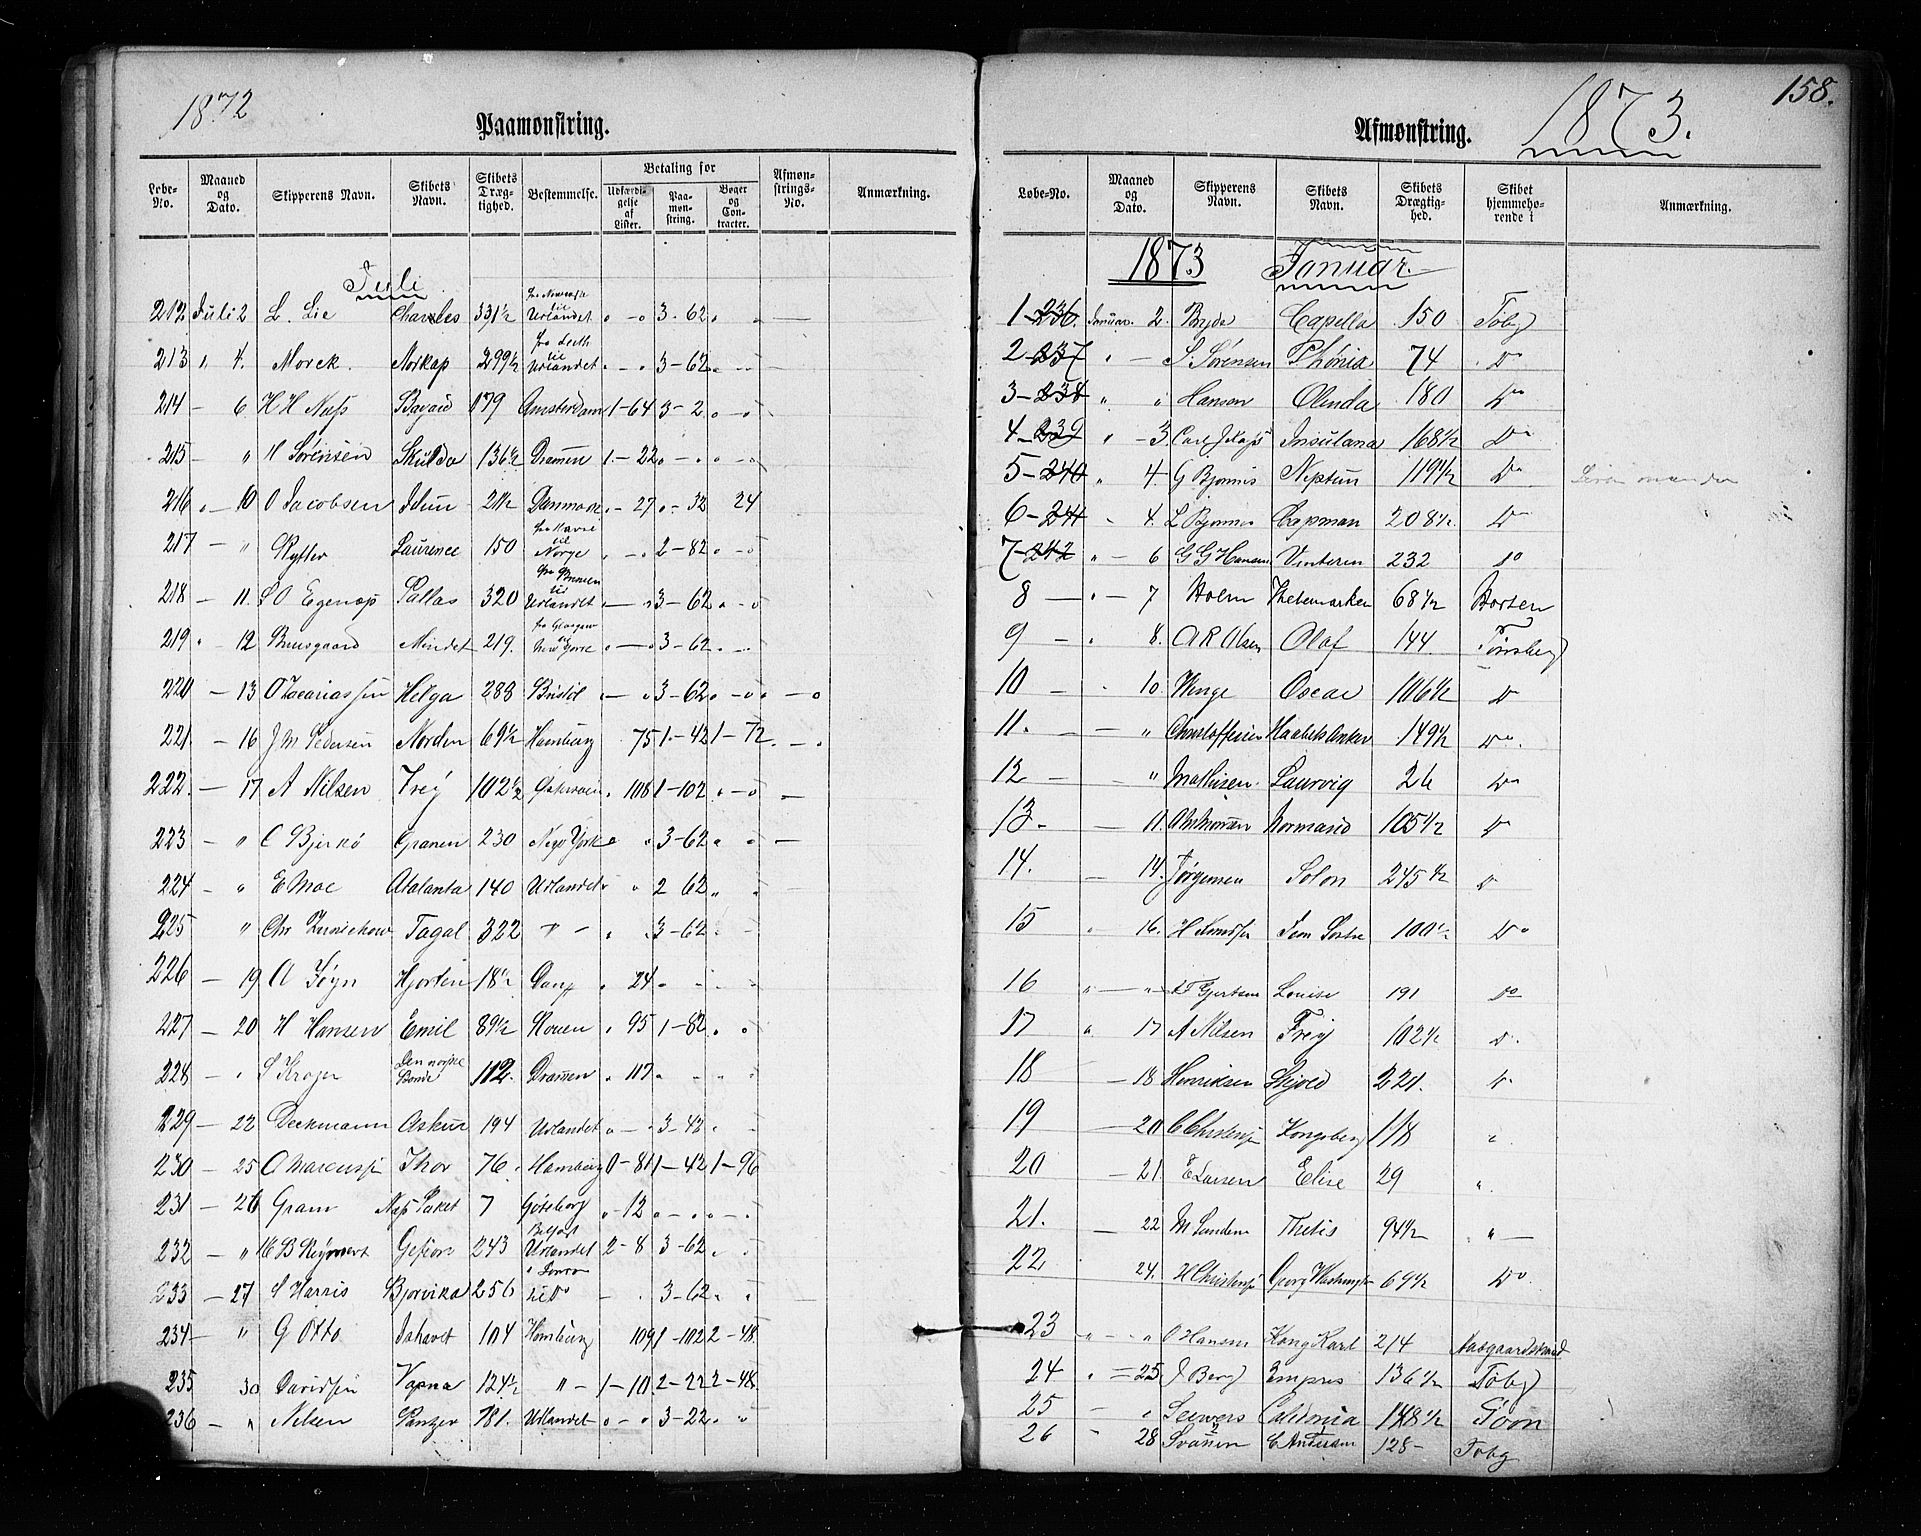 1872
Paamønstring.
Løbe-No. Maaned og Dato. Skipperens Navn. Skibets Navn. Skibets Dræg-tighed. Bestemmelse. Betaling for Udfærdi-gelse af Lister. Paa-møn-string. Bøger og Con-tracter. Afmøn-strings-No. Anmærkning.
Juli
212 Juli 2 L. Lie Charles 331½ Udlandet " - " 3-62 "
213 " 4. Morck. Norkap 299½ fra Leith til Udlandet " - " 3-62 " - "
214 - 6 H H Næss 179 Amsterdam 1-64 3-2 " - "
215 - " H Sørensen Skulda 136½ Drammen 1-22 " - " " - "
216 " - 10 O Jacobsen Idun 21½ Danmark " - 27 " - 32 24
217 - " Rytter Laurence 150 fra Havre til Norge " - " 2-82 " - "
218 - 11. Pallas 320 fra Bremen til Udlandet " - " 3-62 " - "
219 " 12 Bruusgaard Mindet 219. fra Glasgow til New York " - " 3-62 " - "
220 - 13 O Zacariassen Helga 288 Bristol " - " 3-62 " - " " - "
221 - 16 J M Pedersen Norden 69½ Hamburg 75 1-42 1-72 " - "
222 - 17 A Nilsen Frey 102½ " 108 1-102 " - " -
223 - " C Bjerkø Granen 230 New York " " 3-62 " " -
224 - " E Moe Atalanta 140 Udlandet " " 2 62 " "
225 " Chr Tagal 322 " - " " 3-62 " -
226 - 19 A Føyn Hjorten 18½ " 24 " - " -
227 - 20 H Hansen Emil 89½ Rouen " 95 1-82 " "
228 - " S Krøger Den norske Bonde 112. Drammen " 117 " - " -
229 - 22 Deckmann Askur 194 Udlandet " - " 3-42 "
230 - 25 O Marcussen Thor 76. Hamburg 0-81 1-42 1-96
231 - 26 Gram Næs Paket 7 Gøteborg " - 12 " - " " - "
232 - " Gefion 243 Belfast Udlandet 2-8 3-62 "
233 - 27 S Harris Bjørvika 256 til Do - " 3-62 " "
234 - " G Otto Ishavet 104 Hamburg 109 1-102 2-48
235 30 Davidsen Vapna 124½ " - 1-10 2-22 2-48
236 " Nilsen Panzer 181. Udlandet " - " 3-22 " "
158.
Afmønstring. 1873.
Løbe-No. Maaned og Dato. Skipperens Navn. Skibets Navn. Skibets Drægtig-hed. Skibet hjemmehø-rende i Anmærkning.
1873 Januar.
1-236. Januar. 2. Bryde Capella 150 Tøbg
2-237 " - S. Sørensen Phønix 74 Do
3-238 " " Hansen Olenda 180 Do
4-239 " -3 Insulana 168½ Do
5-240 " 4. G Bjønnes Neptun 119½ Do
6-241 - 4. L Bjønnes Capman 208½ Do
7-242 " - 6 G G Hansen Vinteren 232 Do
8 - " - 7 Holm Thelemarken 68½ Horten
9 - " 8. A R Olsen Olaf 144. Tønsberg
10 - " 10. Wenge Oscar 106½ Do
11. - - " Christoffersen Haabets Anker 149½ Do.
12 - " Mathisen Laurvig 26 Do
13. - 11. Normand 105½ Do
14. - 14. Jørgensen Solon 245½ Do
15 " 16. H Knudsen 100½ Do
16 " - " Gjertsen Louise 191 Do
17 " 17 A Nilsen Freiy 102½ D.
18 - 18 Henriksen Skjold 221. D
19 - 20 C Christensen Kongsberg 118 "
20 - 21. E Larsen Elise 29 "
21. - 22 M Sundene Thetis 94½ " -
22 24. H Christensen Georg Washington 69½ Do
23 " - " O Hansen Kong Karl 214 Aasgaardstrand
24 " = 25 J Berg Empres 136½ Tøbg
25 - " Seewers Caledonia 148½
26 - 28 Svanen C Andersen 128- Tøbg